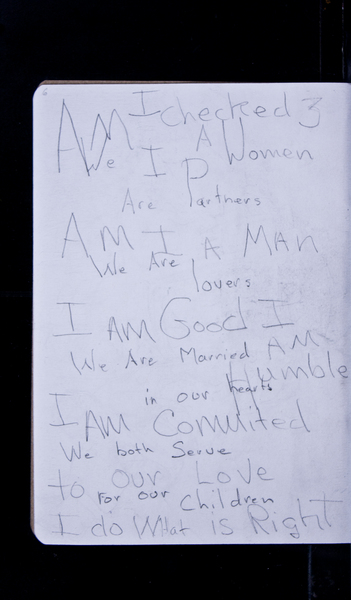 AM I checked 3
A Women
We I P
Are Partners
AM I A MAN
We Are
lovers
I AM Good I
We Are Married AM
Humble
in our hearts
I AM Commited
We both Serve
to Our Love
For our Children
I do What is Right